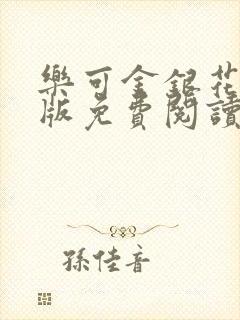 樂可金銀花
版免費閱讀
孫佳音